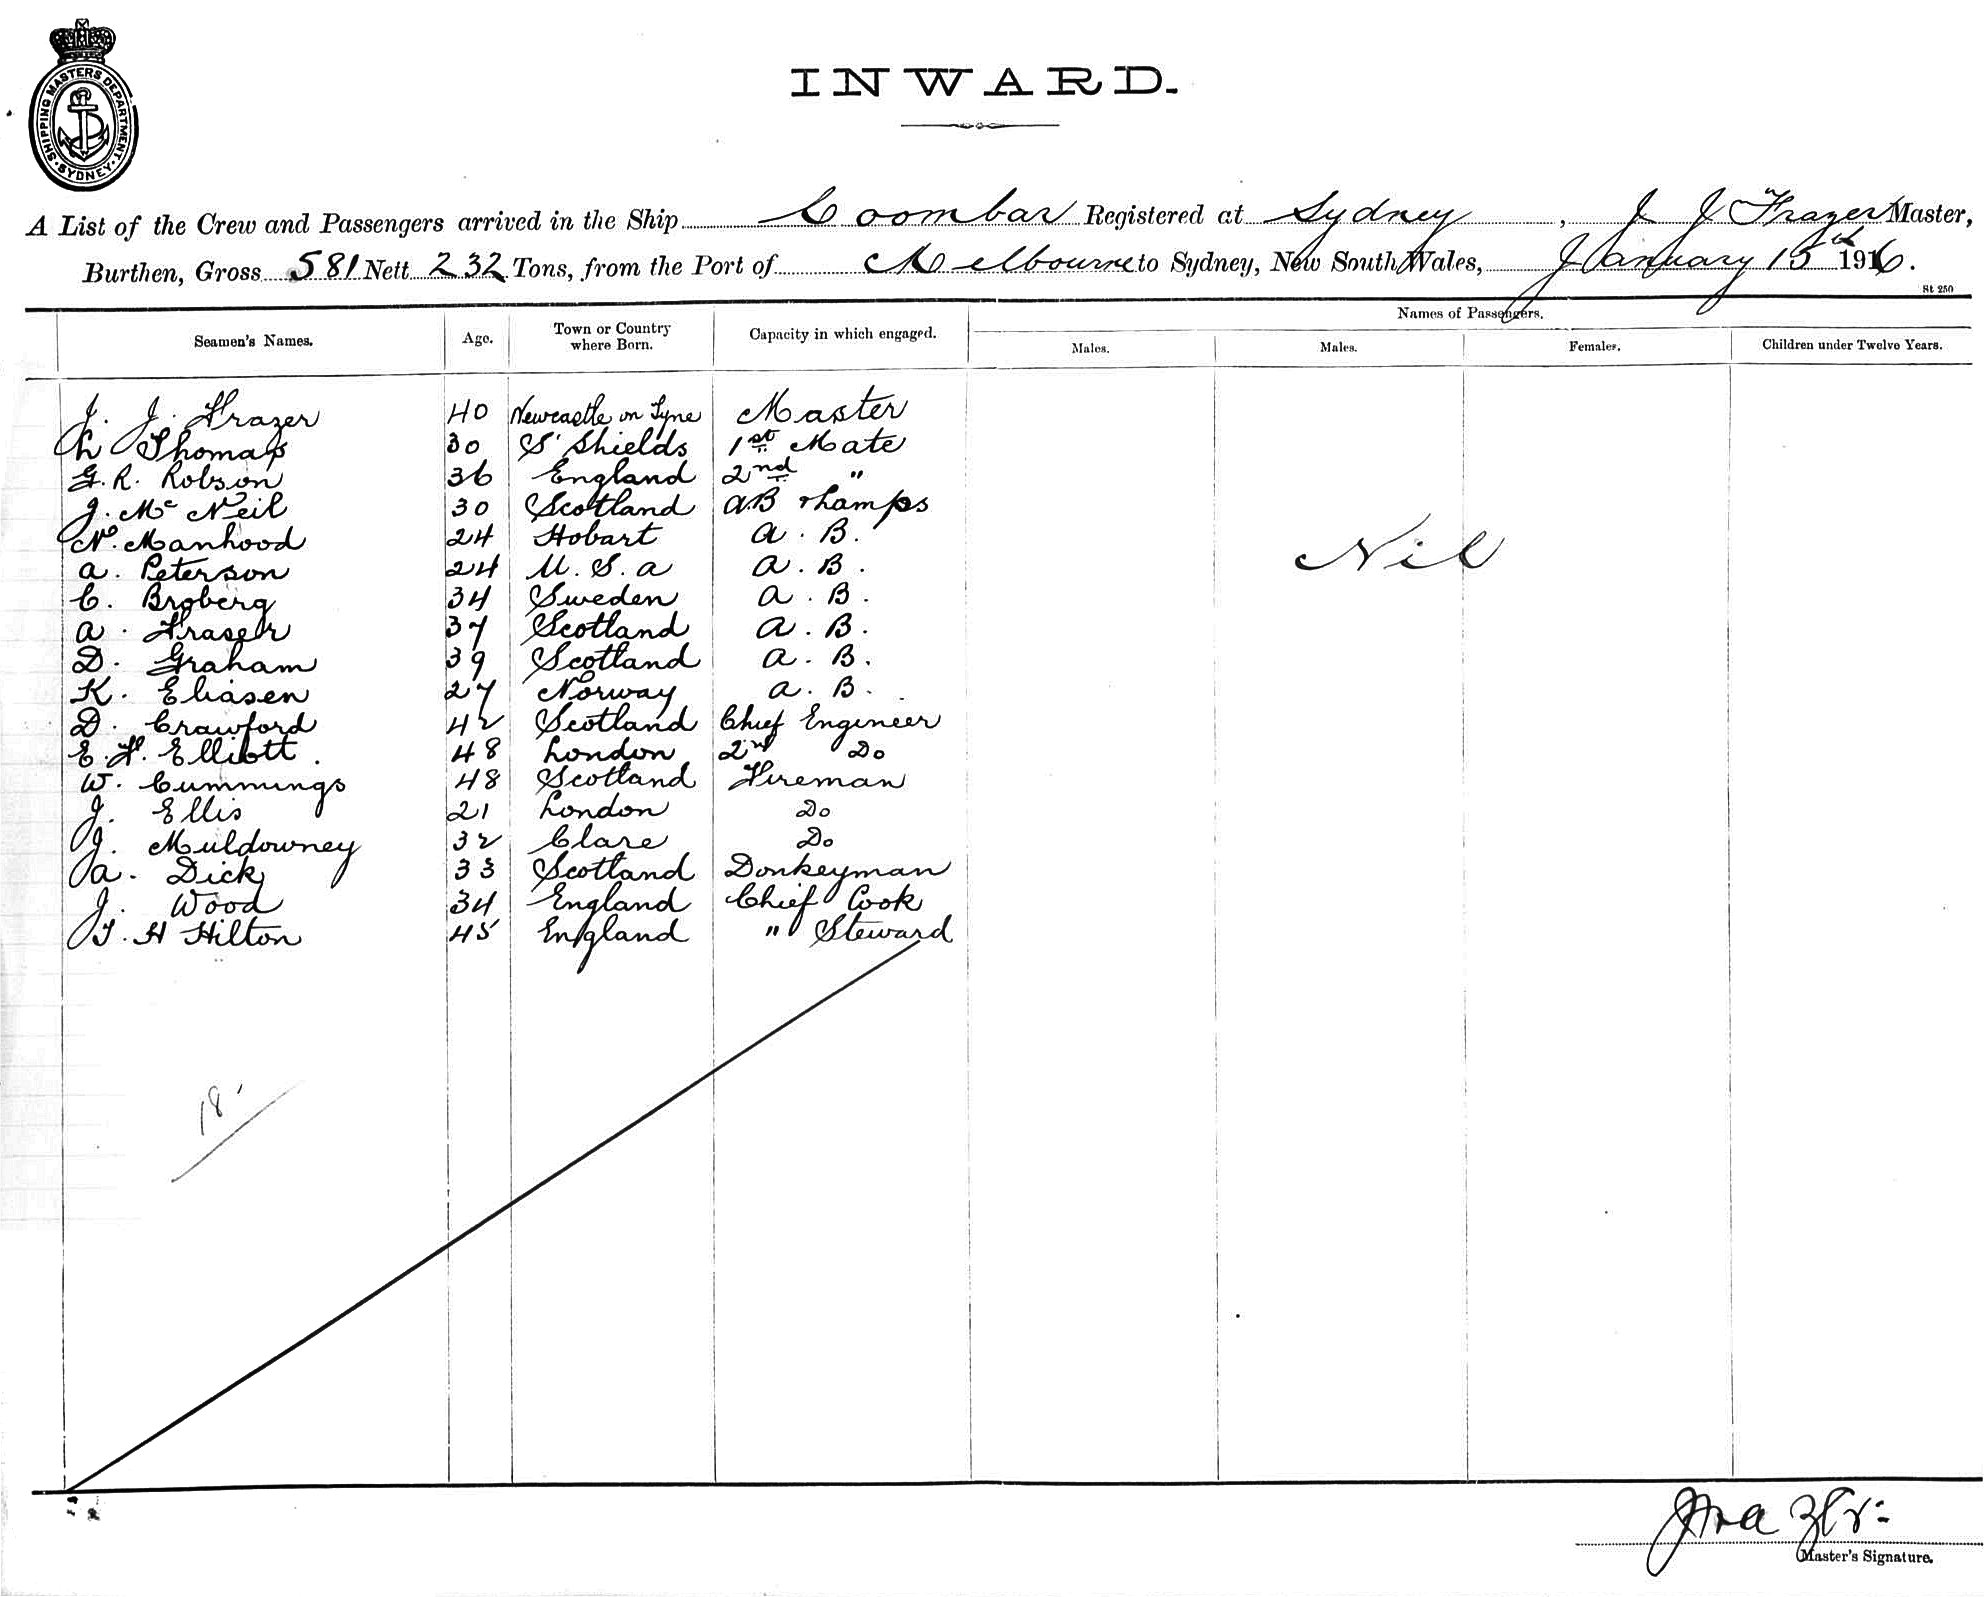 SHIPPING MASTERS DEPARTMENT. SYDNEY.
INWARD.
A List of the Crew and Passengers arrived in the Ship Coombar Registered at Sydney, J J Frazer Master,
Burthen, Gross 581 Nett 232 Tons, from the Port of Melbourne to Sydney, New South Wales, January 15th 1916.
St 250
Names of Passengers.
Seamen's Names. Age. Town or Country where Born. Capacity in which engaged. Males. Males. Females. Children under Twelve Years.
J. J. Frazer 40 Newcastle on Tyne Master
L Thomas 30 S' Shields 1st Mate
G. R. Robson 36 England 2nd "
J. Mc Neil 30 Scotland A.B & Lamps
N. Manhood 24 Hobart A. B.
A. Peterson 24 U. S. A A. B.
C. Broberg 34 Sweden A. B.
A. Fraser 37 Scotland A. B.
D. Graham 39 Scotland A. B.
K. Eliasen 27 Norway A. B.
D. Crawford 42 Scotland Chief Engineer
E. H. Elliott. 48 London 2nd Do
W. Cummings 48 Scotland Fireman
J. Ellis 21 London Do
J. Muldowney 32 Clare Do
A. Dick 33 Scotland Donkeyman
J. Wood 34 England Chief Cook
T. H Hilton 45 England " Steward
Nil
18
JFrazer
Master's Signature.